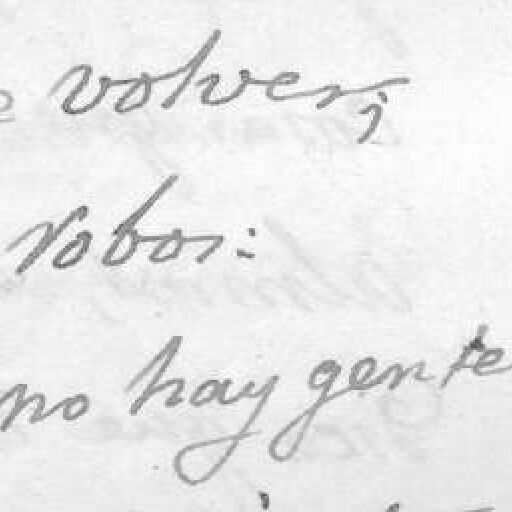 volver;
robos:
no hay gente